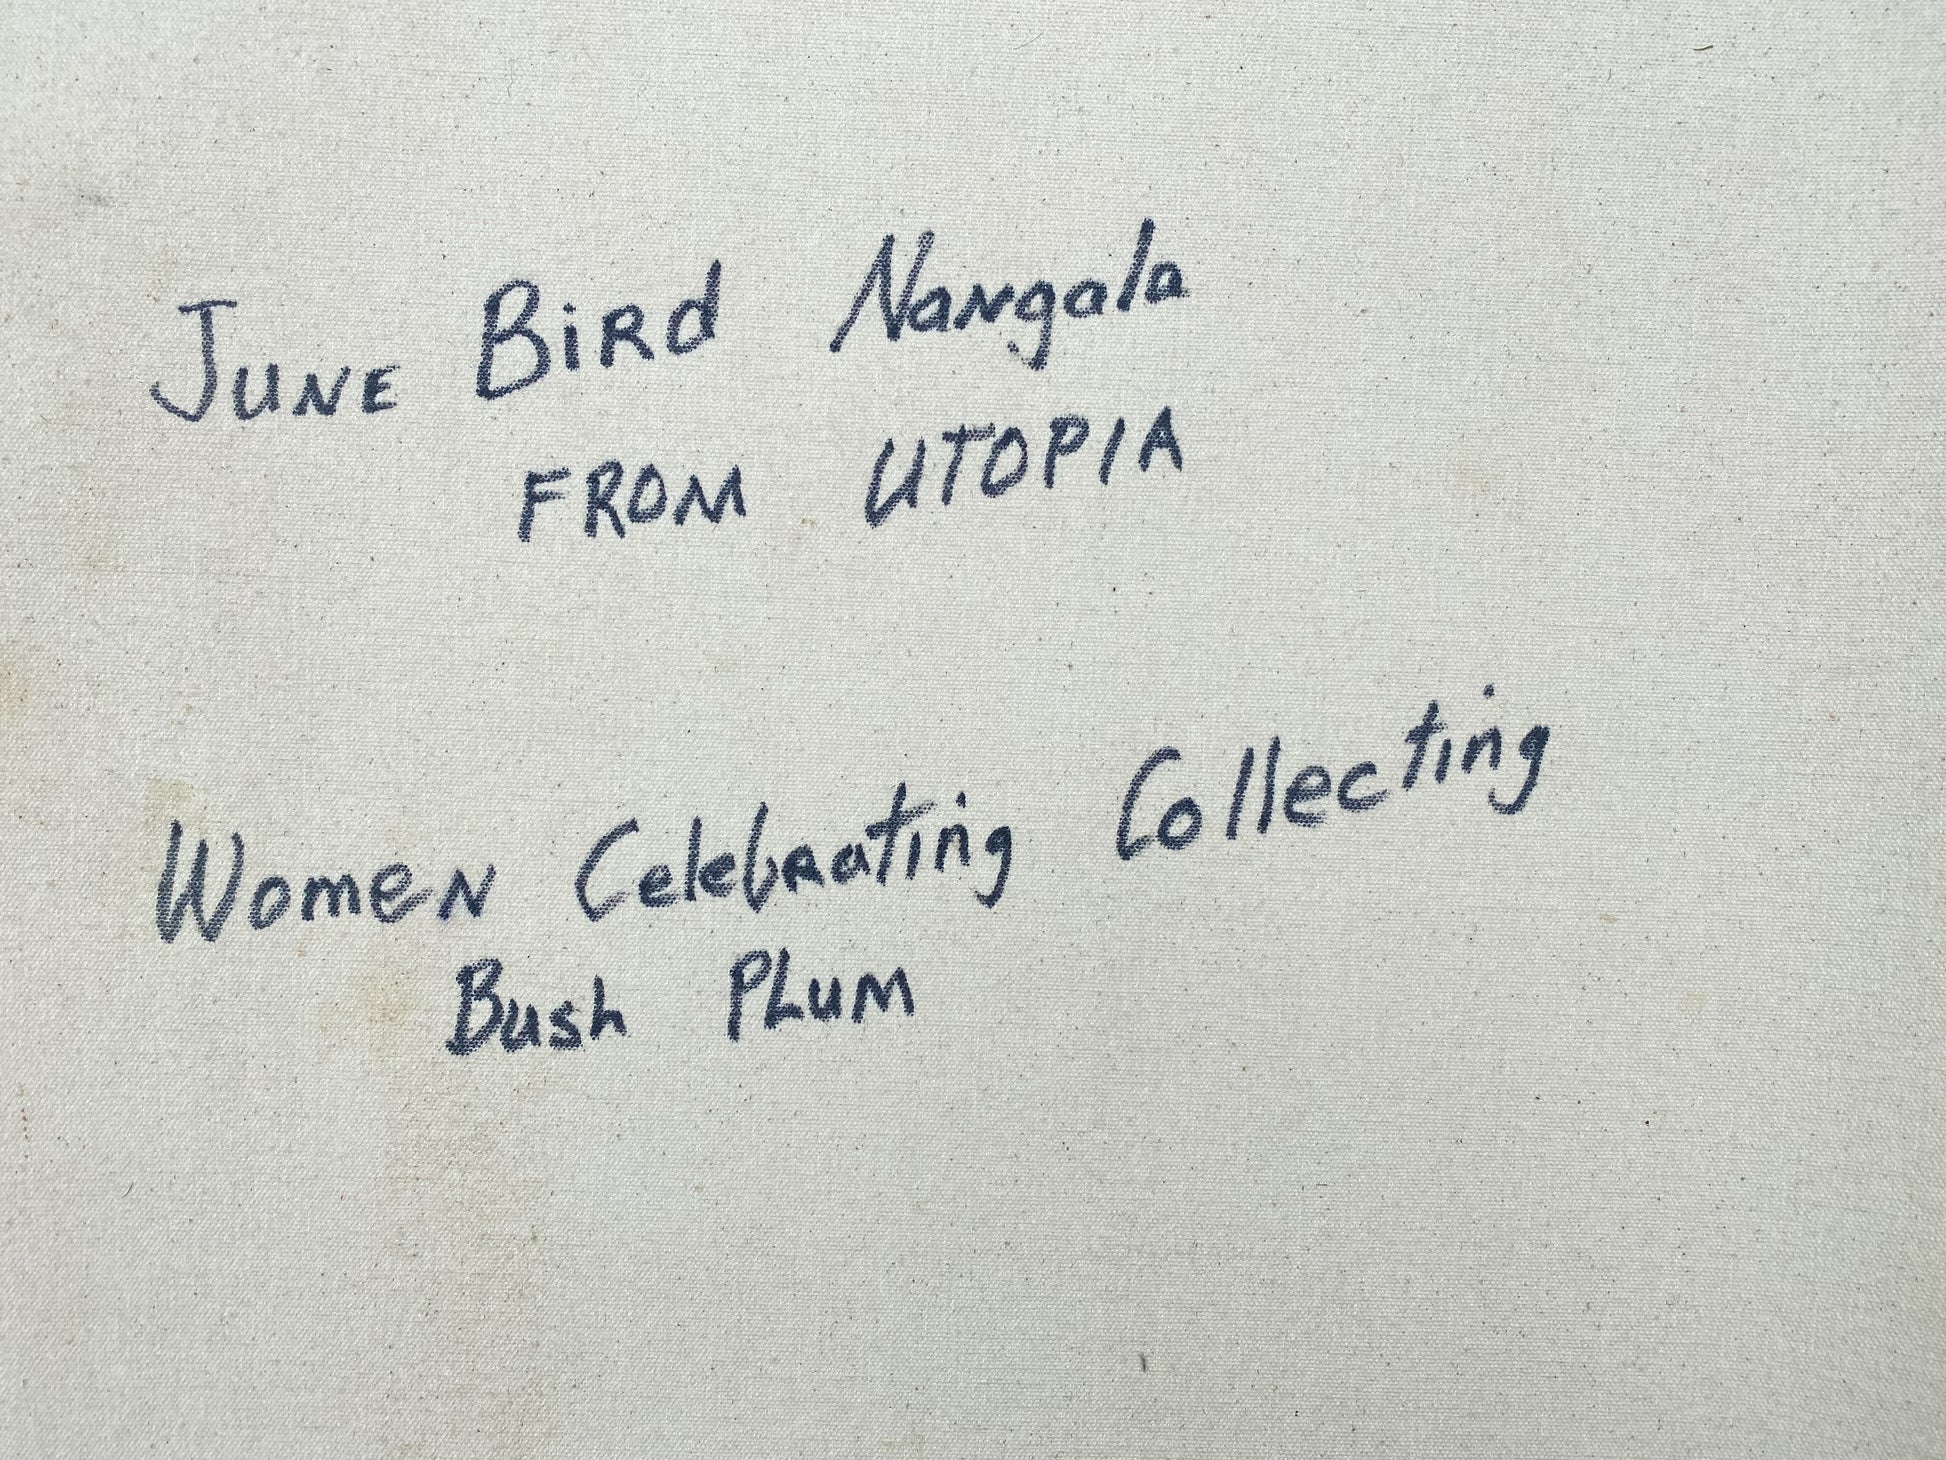 June Bird Nangala
FROM UTOPIA
Women Celebrating Collecting
Bush PLUM